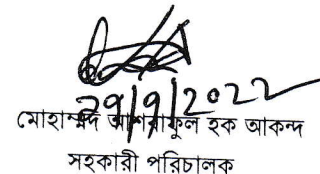 29/9/2022
মোহাম্মদ আশরাফুল হক আকন্দ
সহকারী পরিচালক